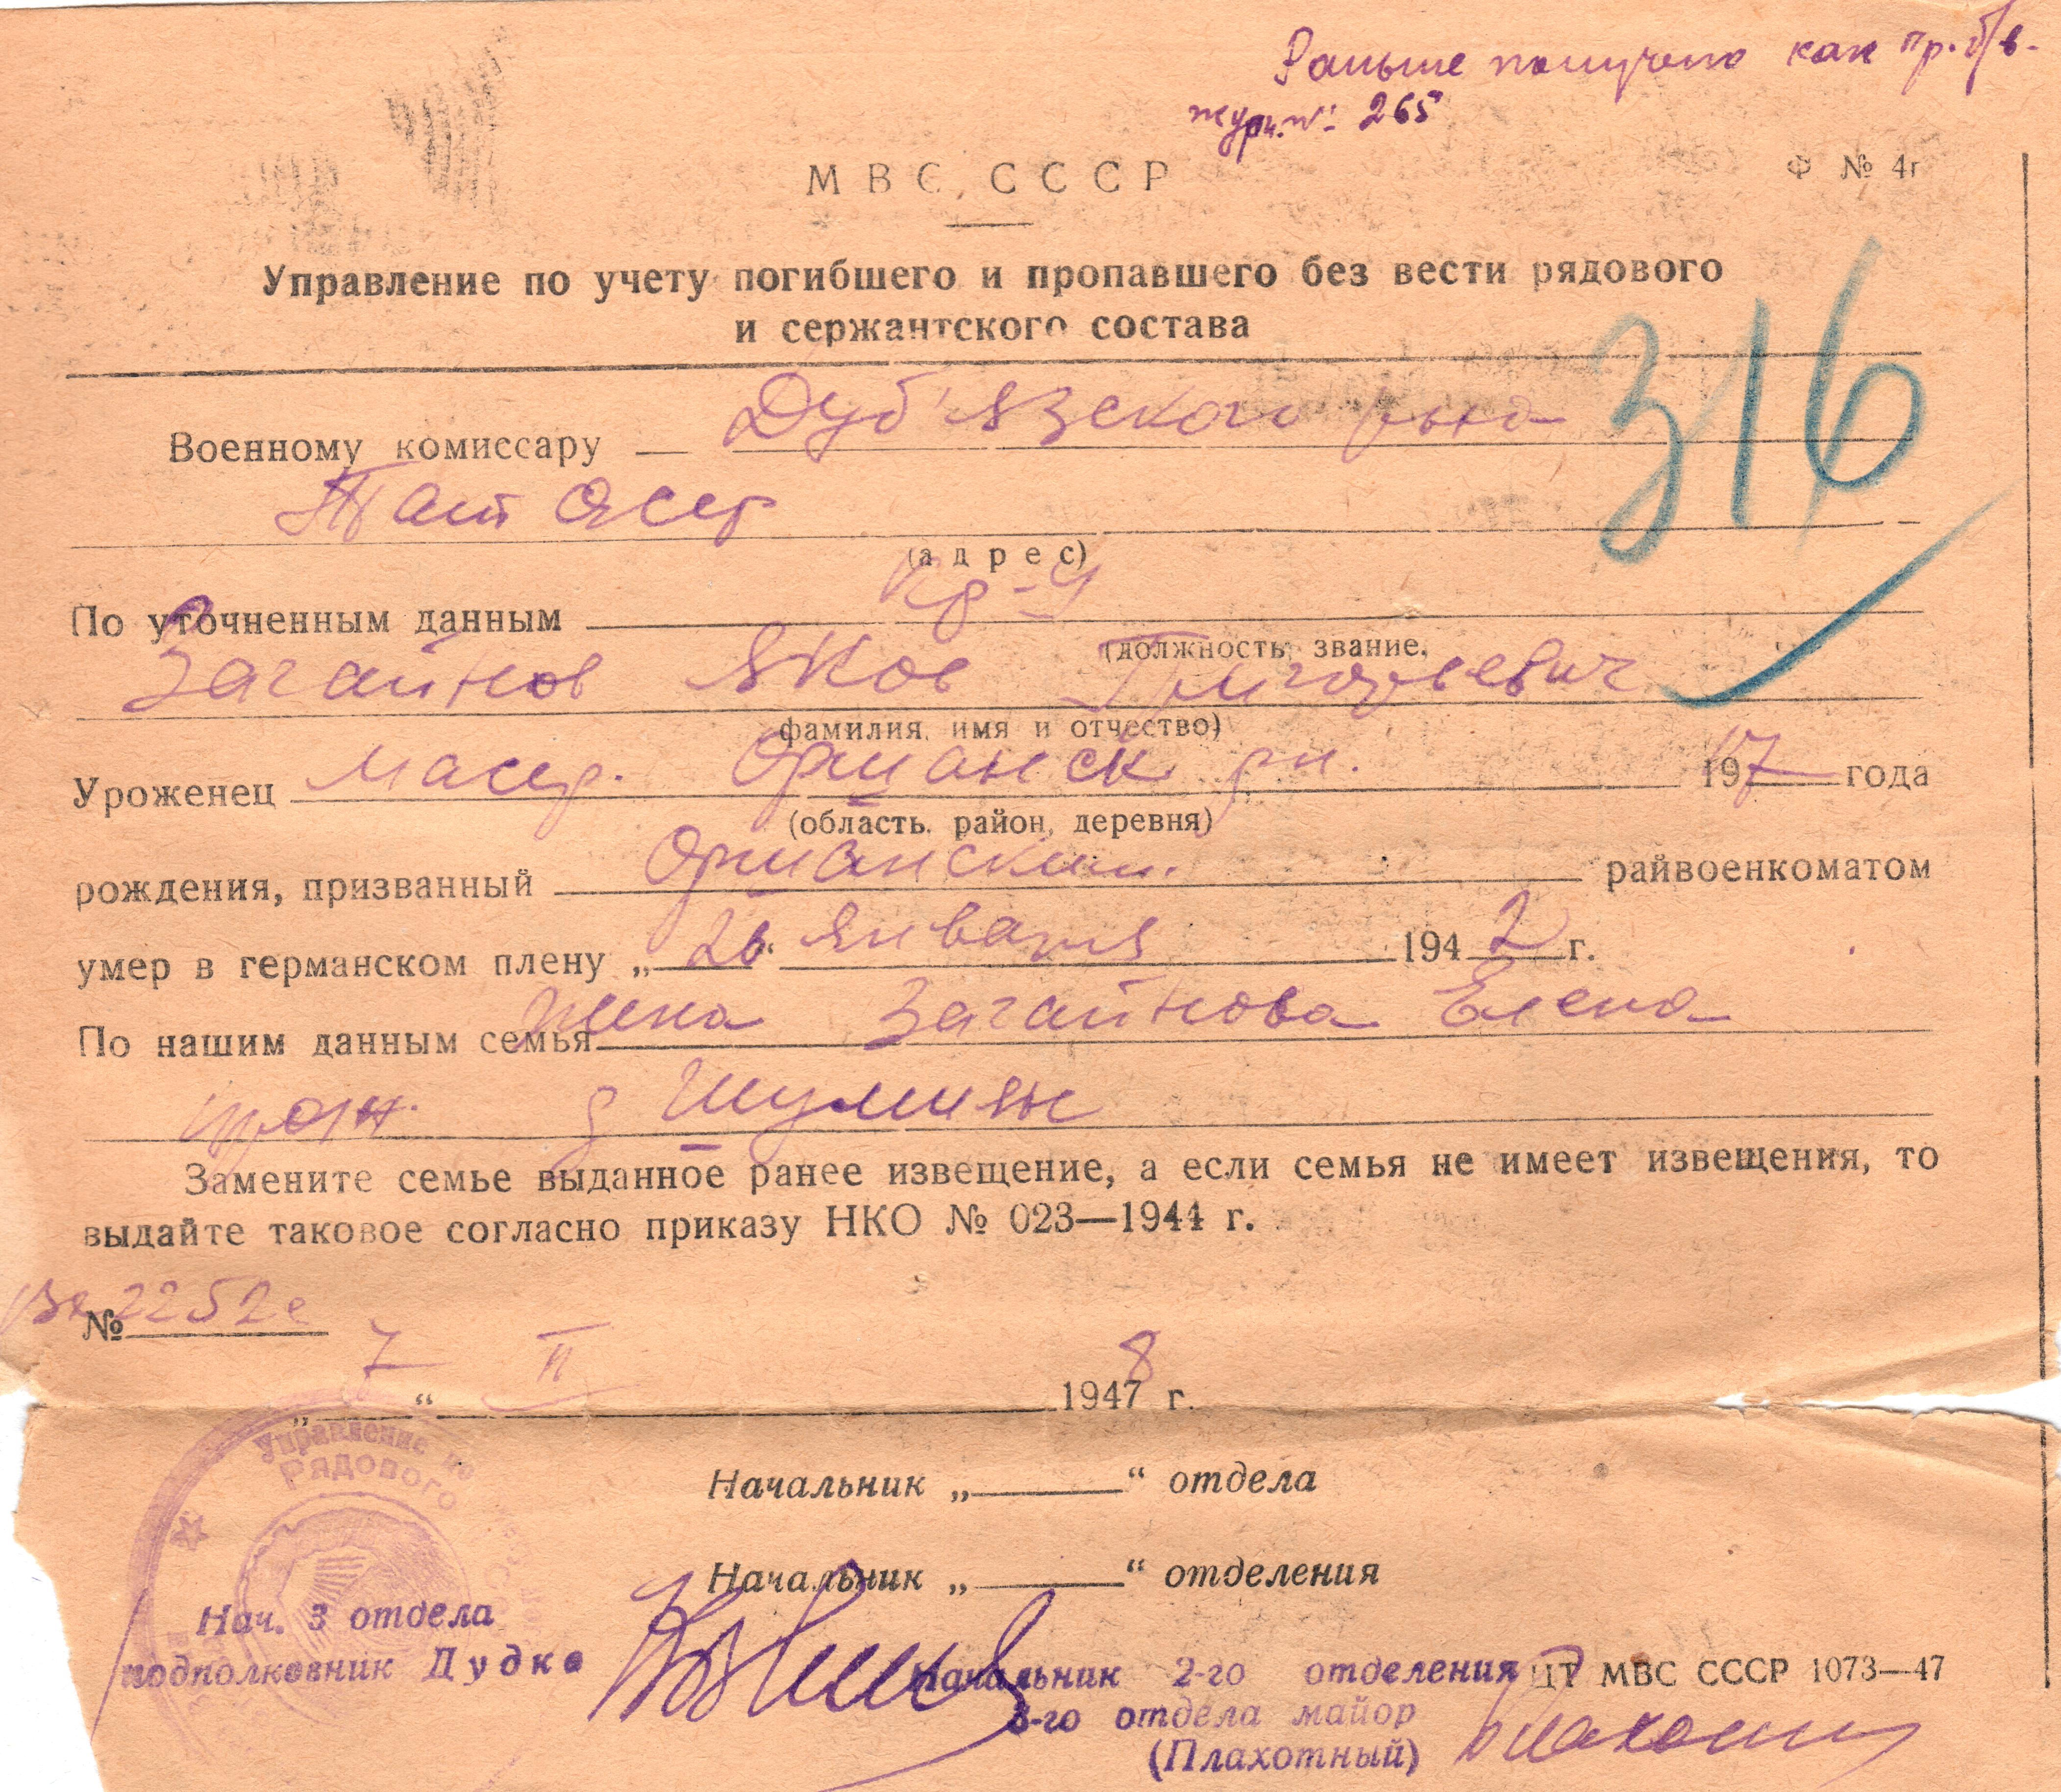 Раньше получено как пр. б/в.
журн. № 265
МВС СССР
Ф № 4г
Управление по учету погибшего и пропавшего без вести рядового
и сержантского состава
316
Военному комиссару — Дуб'язского
Тат Асср
(адрес)
По уточненным данным кр-ц
(должность, звание,
Загайнов Яков Григорьевич
фамилия, имя и отчество)
Уроженец Масср. Оршанск рн. 1917 года
(область, район, деревня)
рождения, призванный Оршанским. райвоенкоматом
умер в германском плену „26“ января 1942 г.
По нашим данным семья жена Загайнова Елена
прож. д Шулмины
Замените семье выданное ранее извещение, а если семья не имеет извещения, то
выдайте таковое согласно приказу НКО № 023—1944 г.
№ 2252с
„7“ II 1947 8 г.
Управление по
рядового
Начальник „ “ отдела
Начальник „ “ отделения
Нач. 3 отдела
подполковник Дудко
Начальник 2-го отделения
3-го отдела майор
(Плахотный)
ЦТ МВС СССР 1073—47